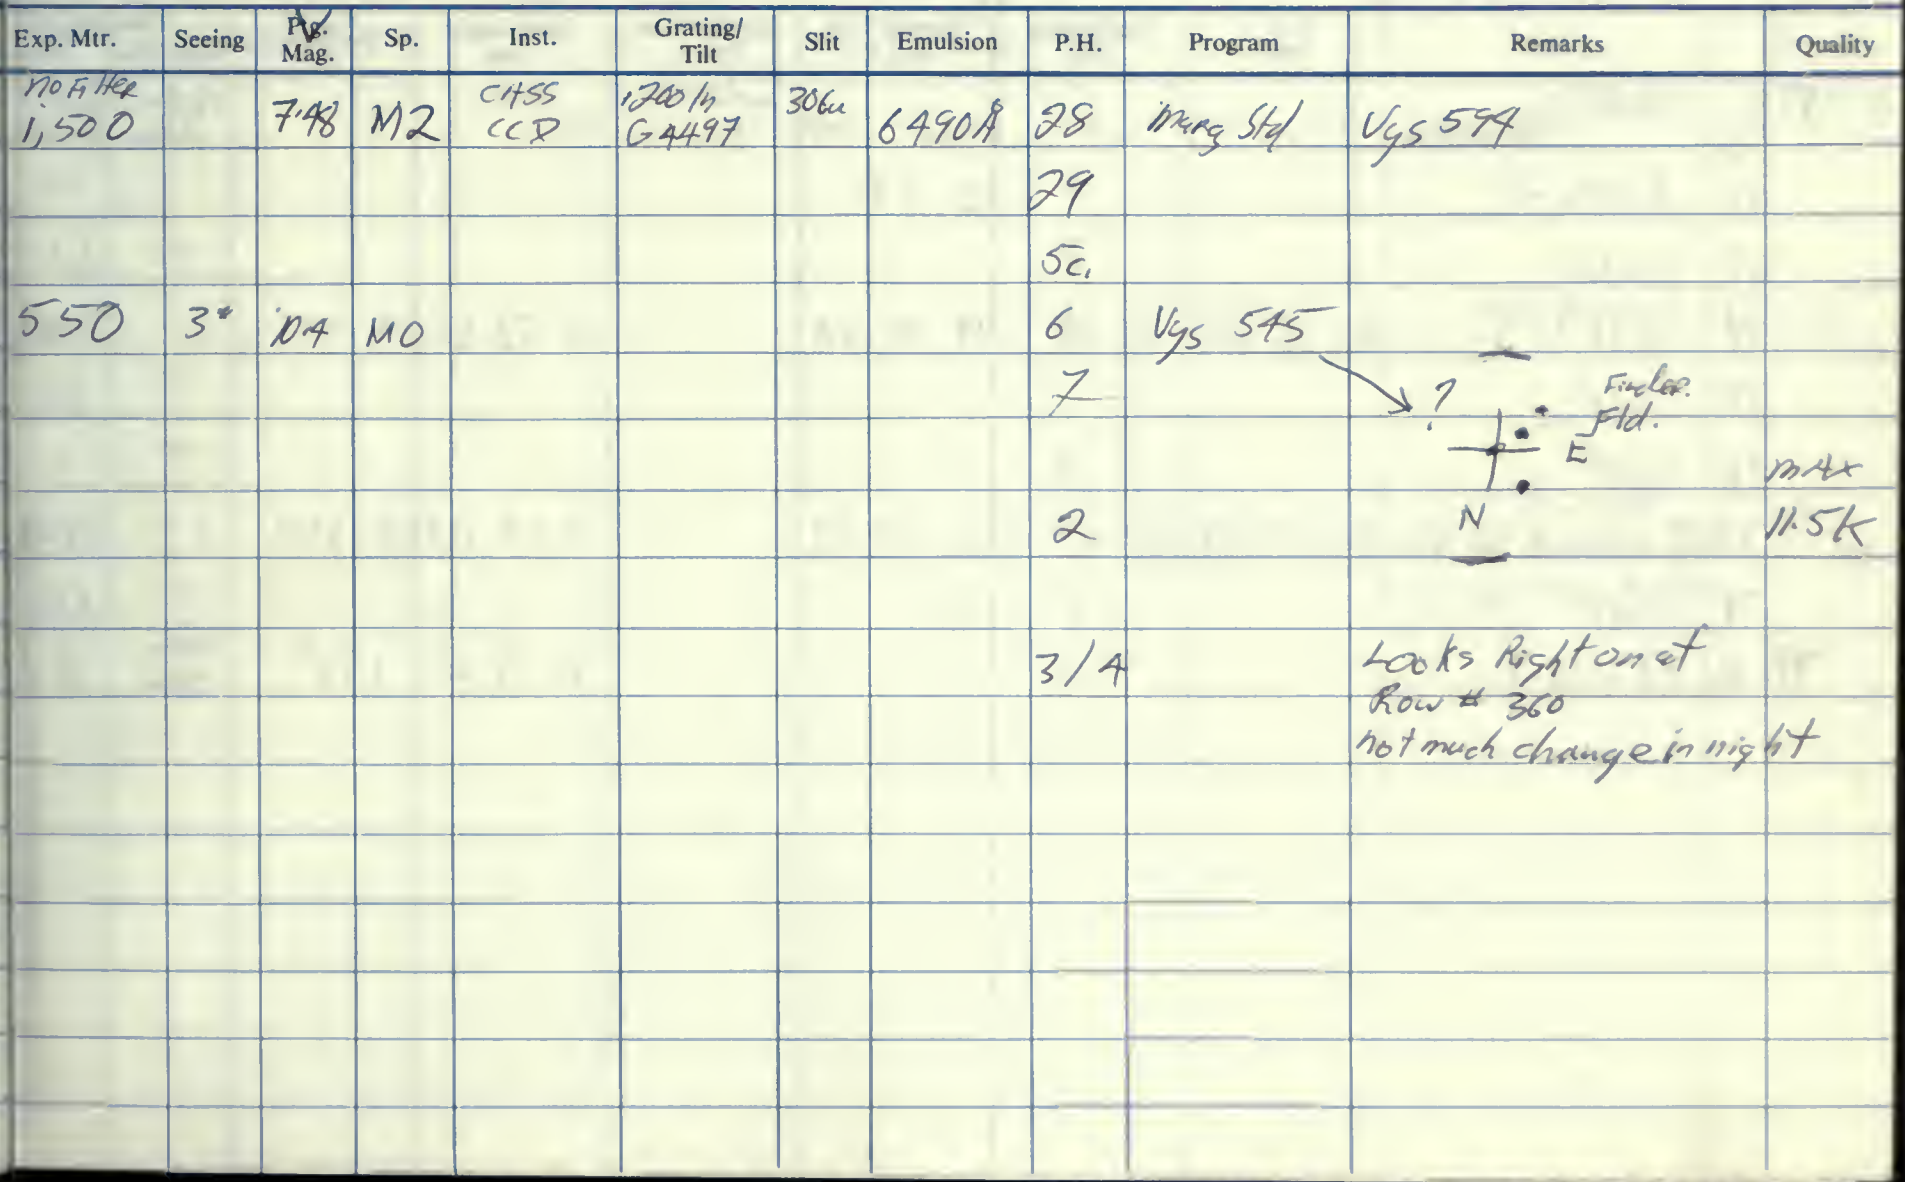 Exp. Mtr. Seeing Ptg. V Mag. Sp. Inst. Grating/ Tilt Slit Emulsion P.H. Program Remarks Quality
no Filter 1,500 7.48 M2 CASS CCD 1200/m G4497 306u 6490Å 28 Marg Std Vys 594
29
5c.
550 3" 10.4 M0 6 Vys 545
7 ? Finder. Fld.
E
max
2 N 11.5K
3/4 Looks Right on at
Row # 360
not much change in night